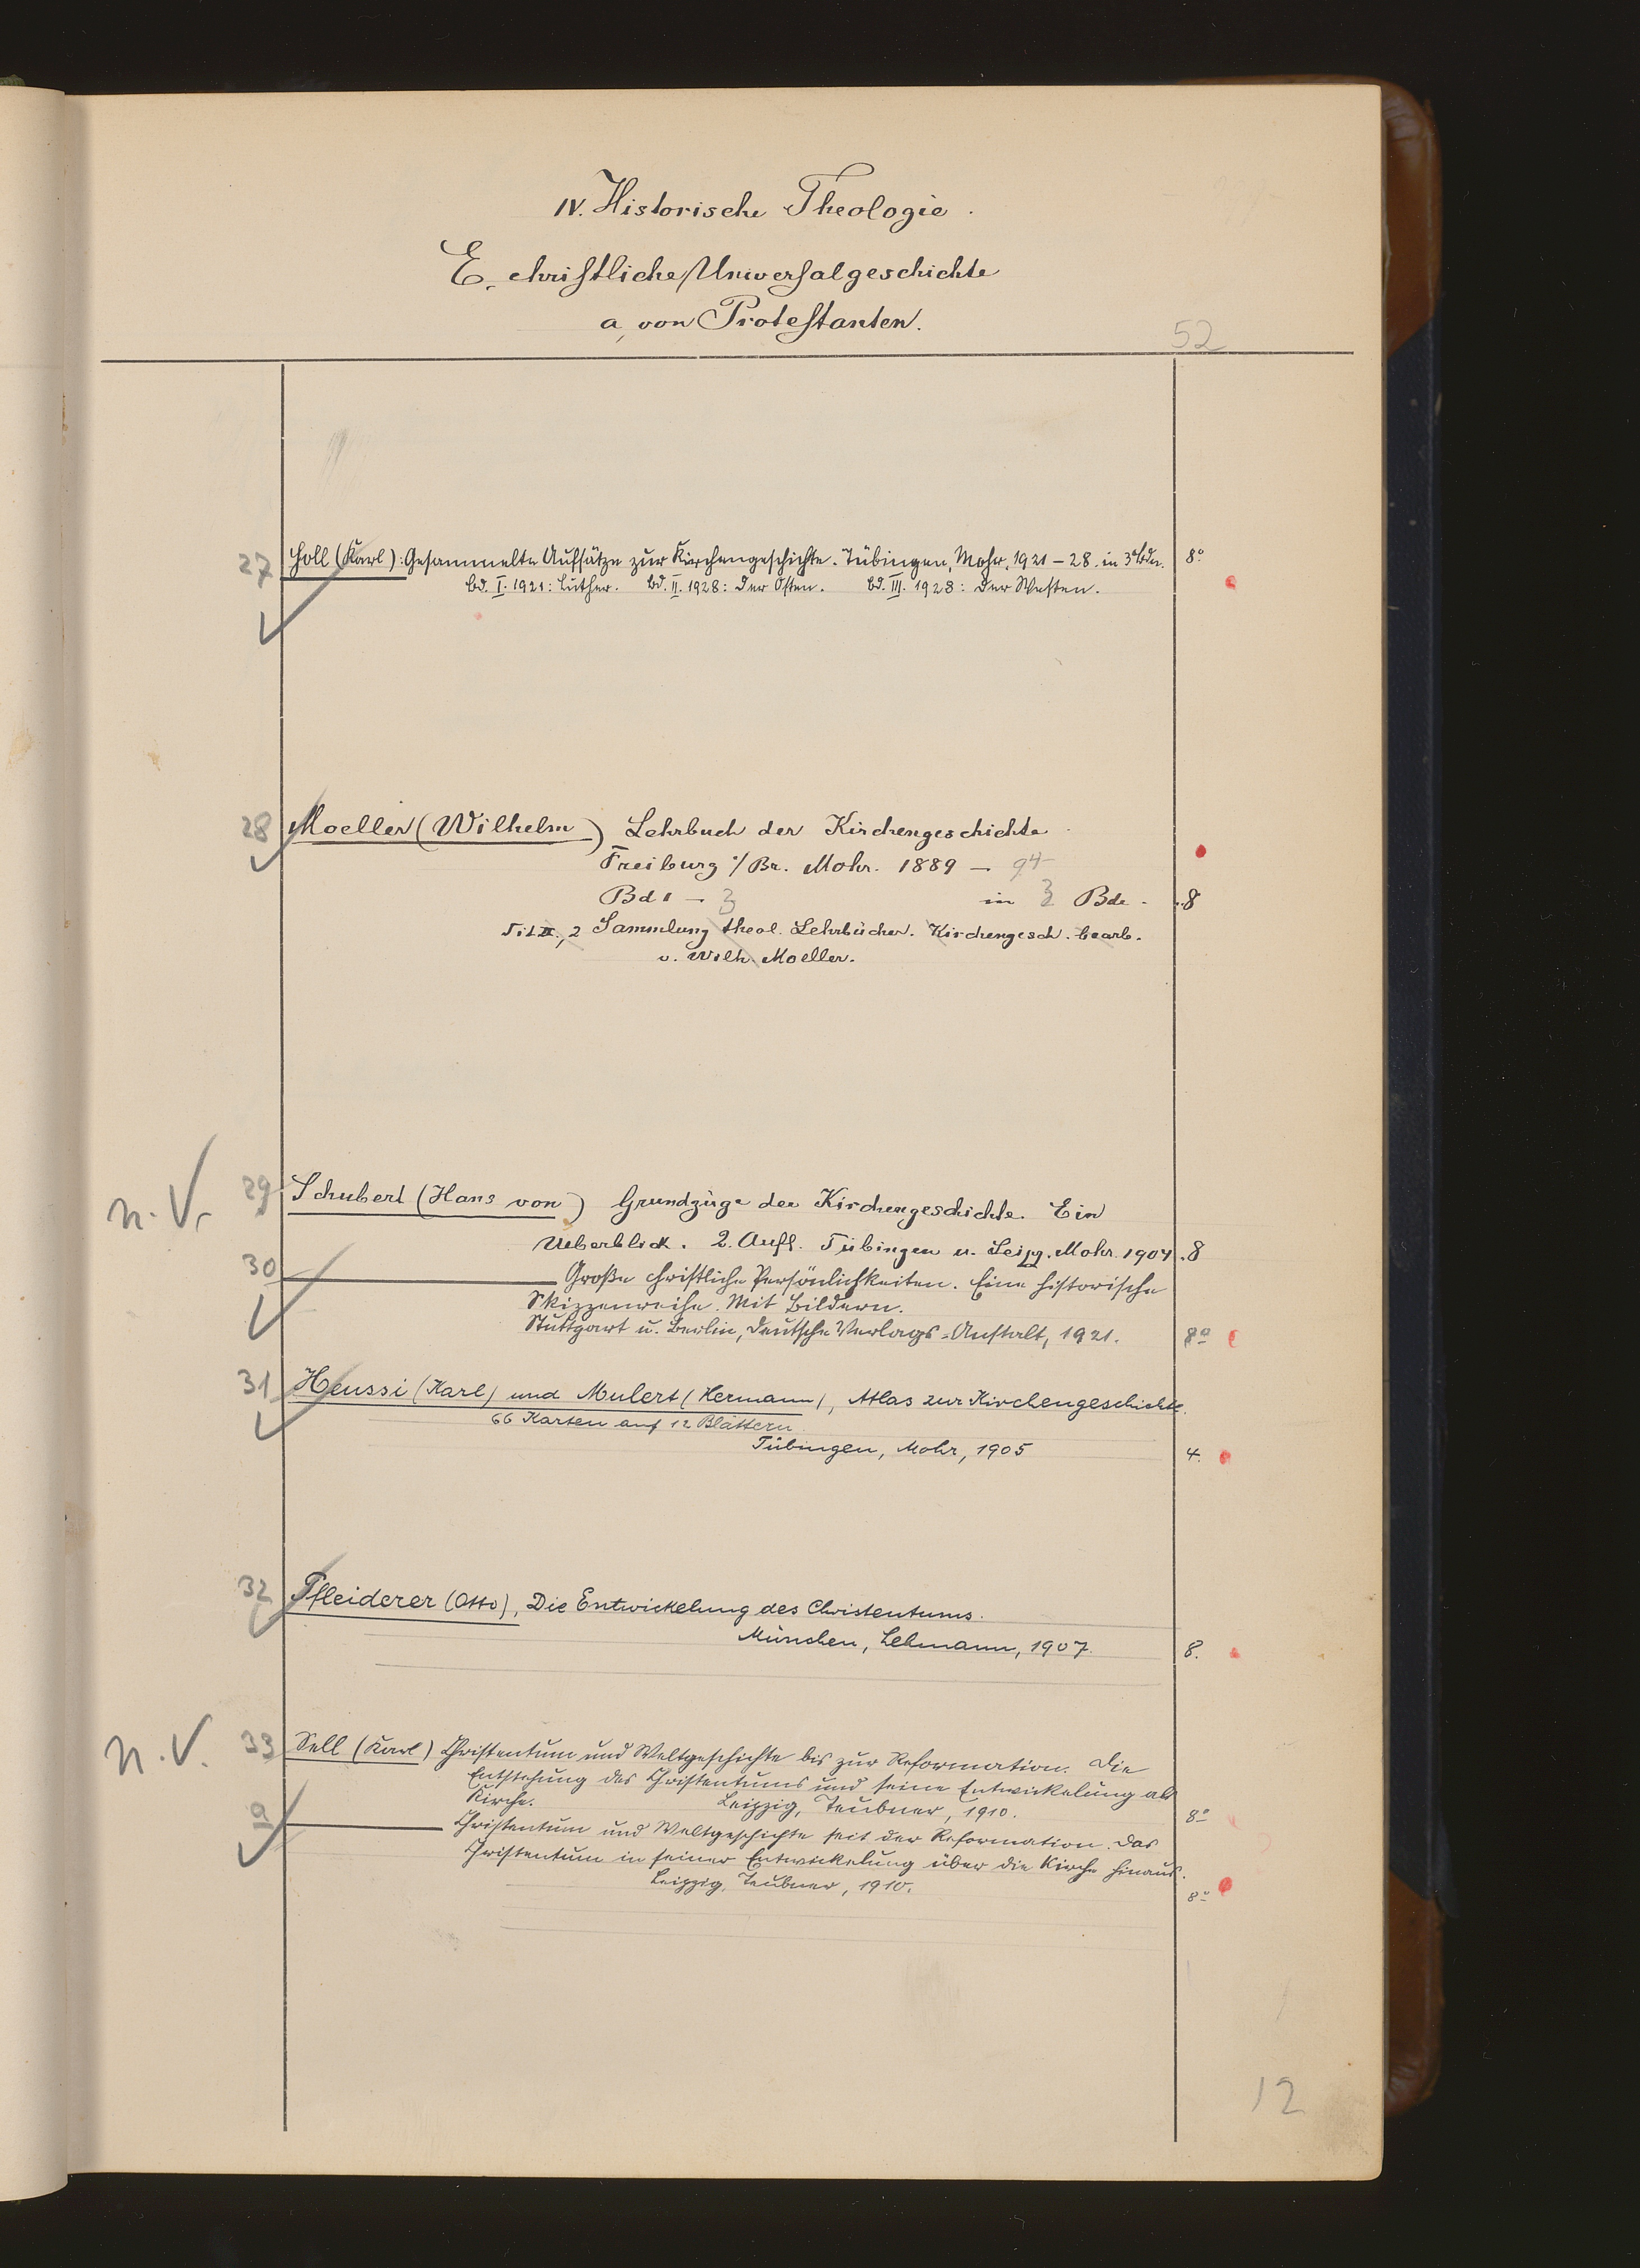 IV. Historische Theologie.
E. christliche Universalgeschichte
a, von Protestanten.
52
27 Holl (Karl): Gesammelte Aufsätze zur Kirchengeschichte. Tübingen, Mohr, 1921 – 28. in 3 Bdn. 8°
Bd. I. 1921: Luther. Bd. II. 1928: Der Osten. Bd. III. 1928: Der Westen.
28 Moeller (Wilhelm) Lehrbuch der Kirchengeschichte
Freiburg i/Br. Mohr. 1889 – 94
Bd 1 – 3 in 3 Bde. 8
Tit. II, 2 Sammlung theol. Lehrbücher. Kirchengesch. bearb.
v. Wilh. Moeller.
n. V. 29 Schubert (Hans von) Grundzüge der Kirchengeschichte. Ein
Ueberblick. 2. Aufl. Tübingen u. Leipz. Mohr. 1904. 8
30 Große christliche Persönlichkeiten. Eine historische
Skizzenreihe. Mit Bildern.
Stuttgart u. Berlin, Deutsche Verlags-Anstalt, 1921. 8°
31 Heussi (Karl) und Mulert (Hermann), Atlas zur Kirchengeschichte.
66 Karten auf 12 Blättern
Tübingen, Mohr, 1905 4.
32 Pfleiderer (Otto), Die Entwickelung des Christentums.
München, Lehmann, 1907. 8.
n. V. 33 Sell (Karl) Christentum und Weltgeschichte bis zur Reformation. Die
Entstehung des Christentums und seine Entwickelung als
Kirche. Leipzig, Teubner, 1910. 8°
a Christentum und Weltgeschichte seit der Reformation. Das
Christentum in seiner Entwickelung über die Kirche hinaus.
Leipzig, Teubner, 1910. 8°
12